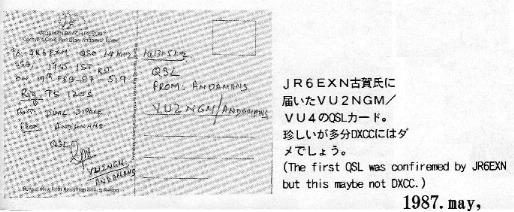 TO. JR6EXM QSO 14MHz
SSB, 1745 IST
ON 19th FEB-87 - 579
Rig TS 120S
ANT: DUAL DIPOLE
FROM ANDAMANS
QSL
VU2NGM
ANDAMANS
QSL
FROM: ANDAMANS
VU2NGM/ANDAMANS
JR6EXN古賀氏に
届いたVU2NGM/
VU4のQSLカード。
珍しいが多分DXCCにはダ
メでしょう。
(The first QSL was confiremed by JR6EXN
but this maybe not DXCC.)
1987.may,